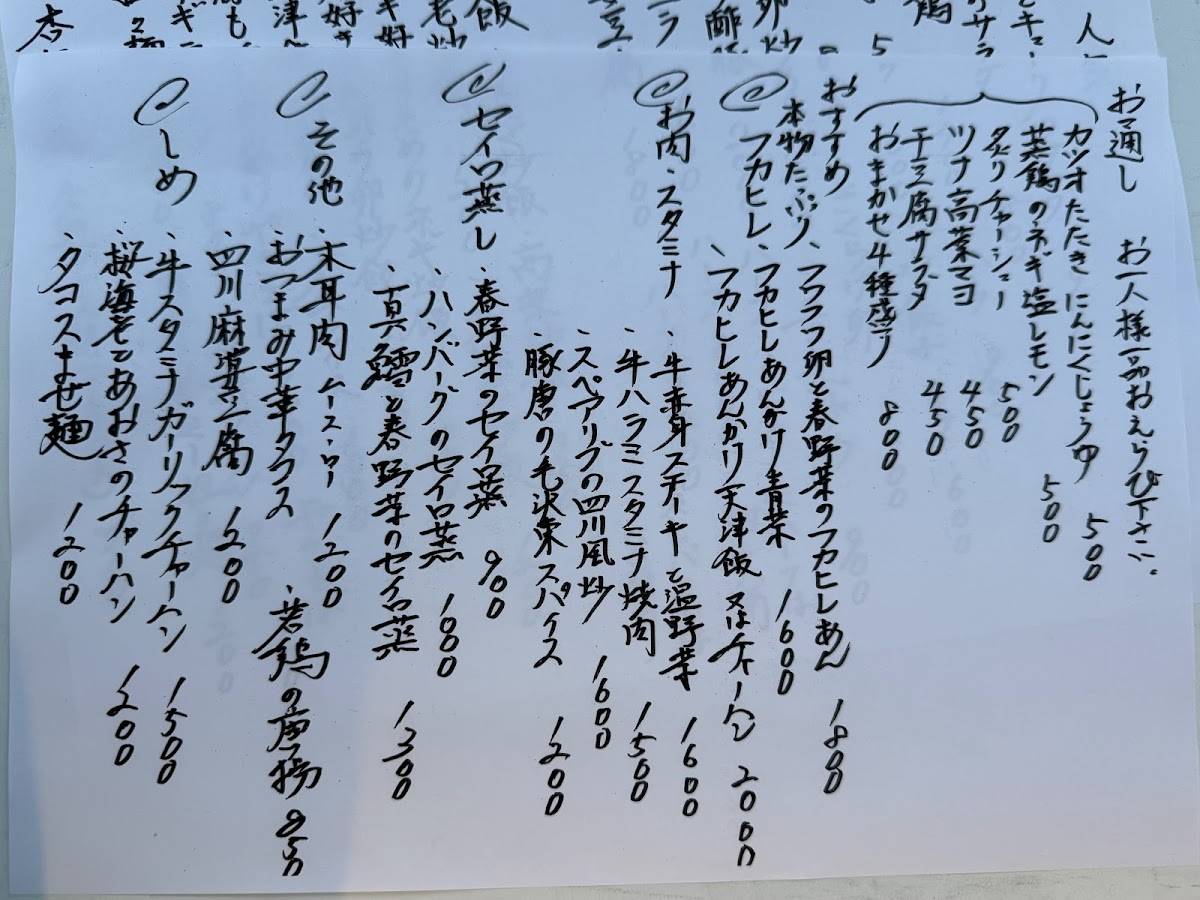 お通し お一人様一品おえらび下さい。
カツオたたき にんにくじょうゆ 500
蒸鶏のネギ塩レモン 500
炙りチャーシュー 500
ツナ高菜マヨ 450
干豆腐サラダ 450
おまかせ4種盛り 800
おすすめ
本物たっぷり ・フワフワ卵と春野菜のフカヒレあん 1800
フカヒレ ・フカヒレあんかけ青菜 1600
・フカヒレあんかけ天津飯 又はチャーハン 2000
お肉・スタミナ ・牛赤身ステーキと温野菜 1600
・牛ハラミスタミナ焼肉 1500
・スペアリブの四川風炒 1600
・豚唐の毛沢東スパイス 1200
セイロ蒸し ・春野菜のセイロ蒸 900
・ハンバーグのセイロ蒸 1000
・真鱈と春野菜のセイロ蒸 1300
その他 ・木耳肉ムースーロー 1200
・おつまみ中華タコス ・若鶏の唐揚 950
・四川麻婆豆腐 1200
しめ ・牛スタミナガーリックチャーハン 1500
・桜海老とあおさのチャーハン 1200
・タコスまぜ麺 1200